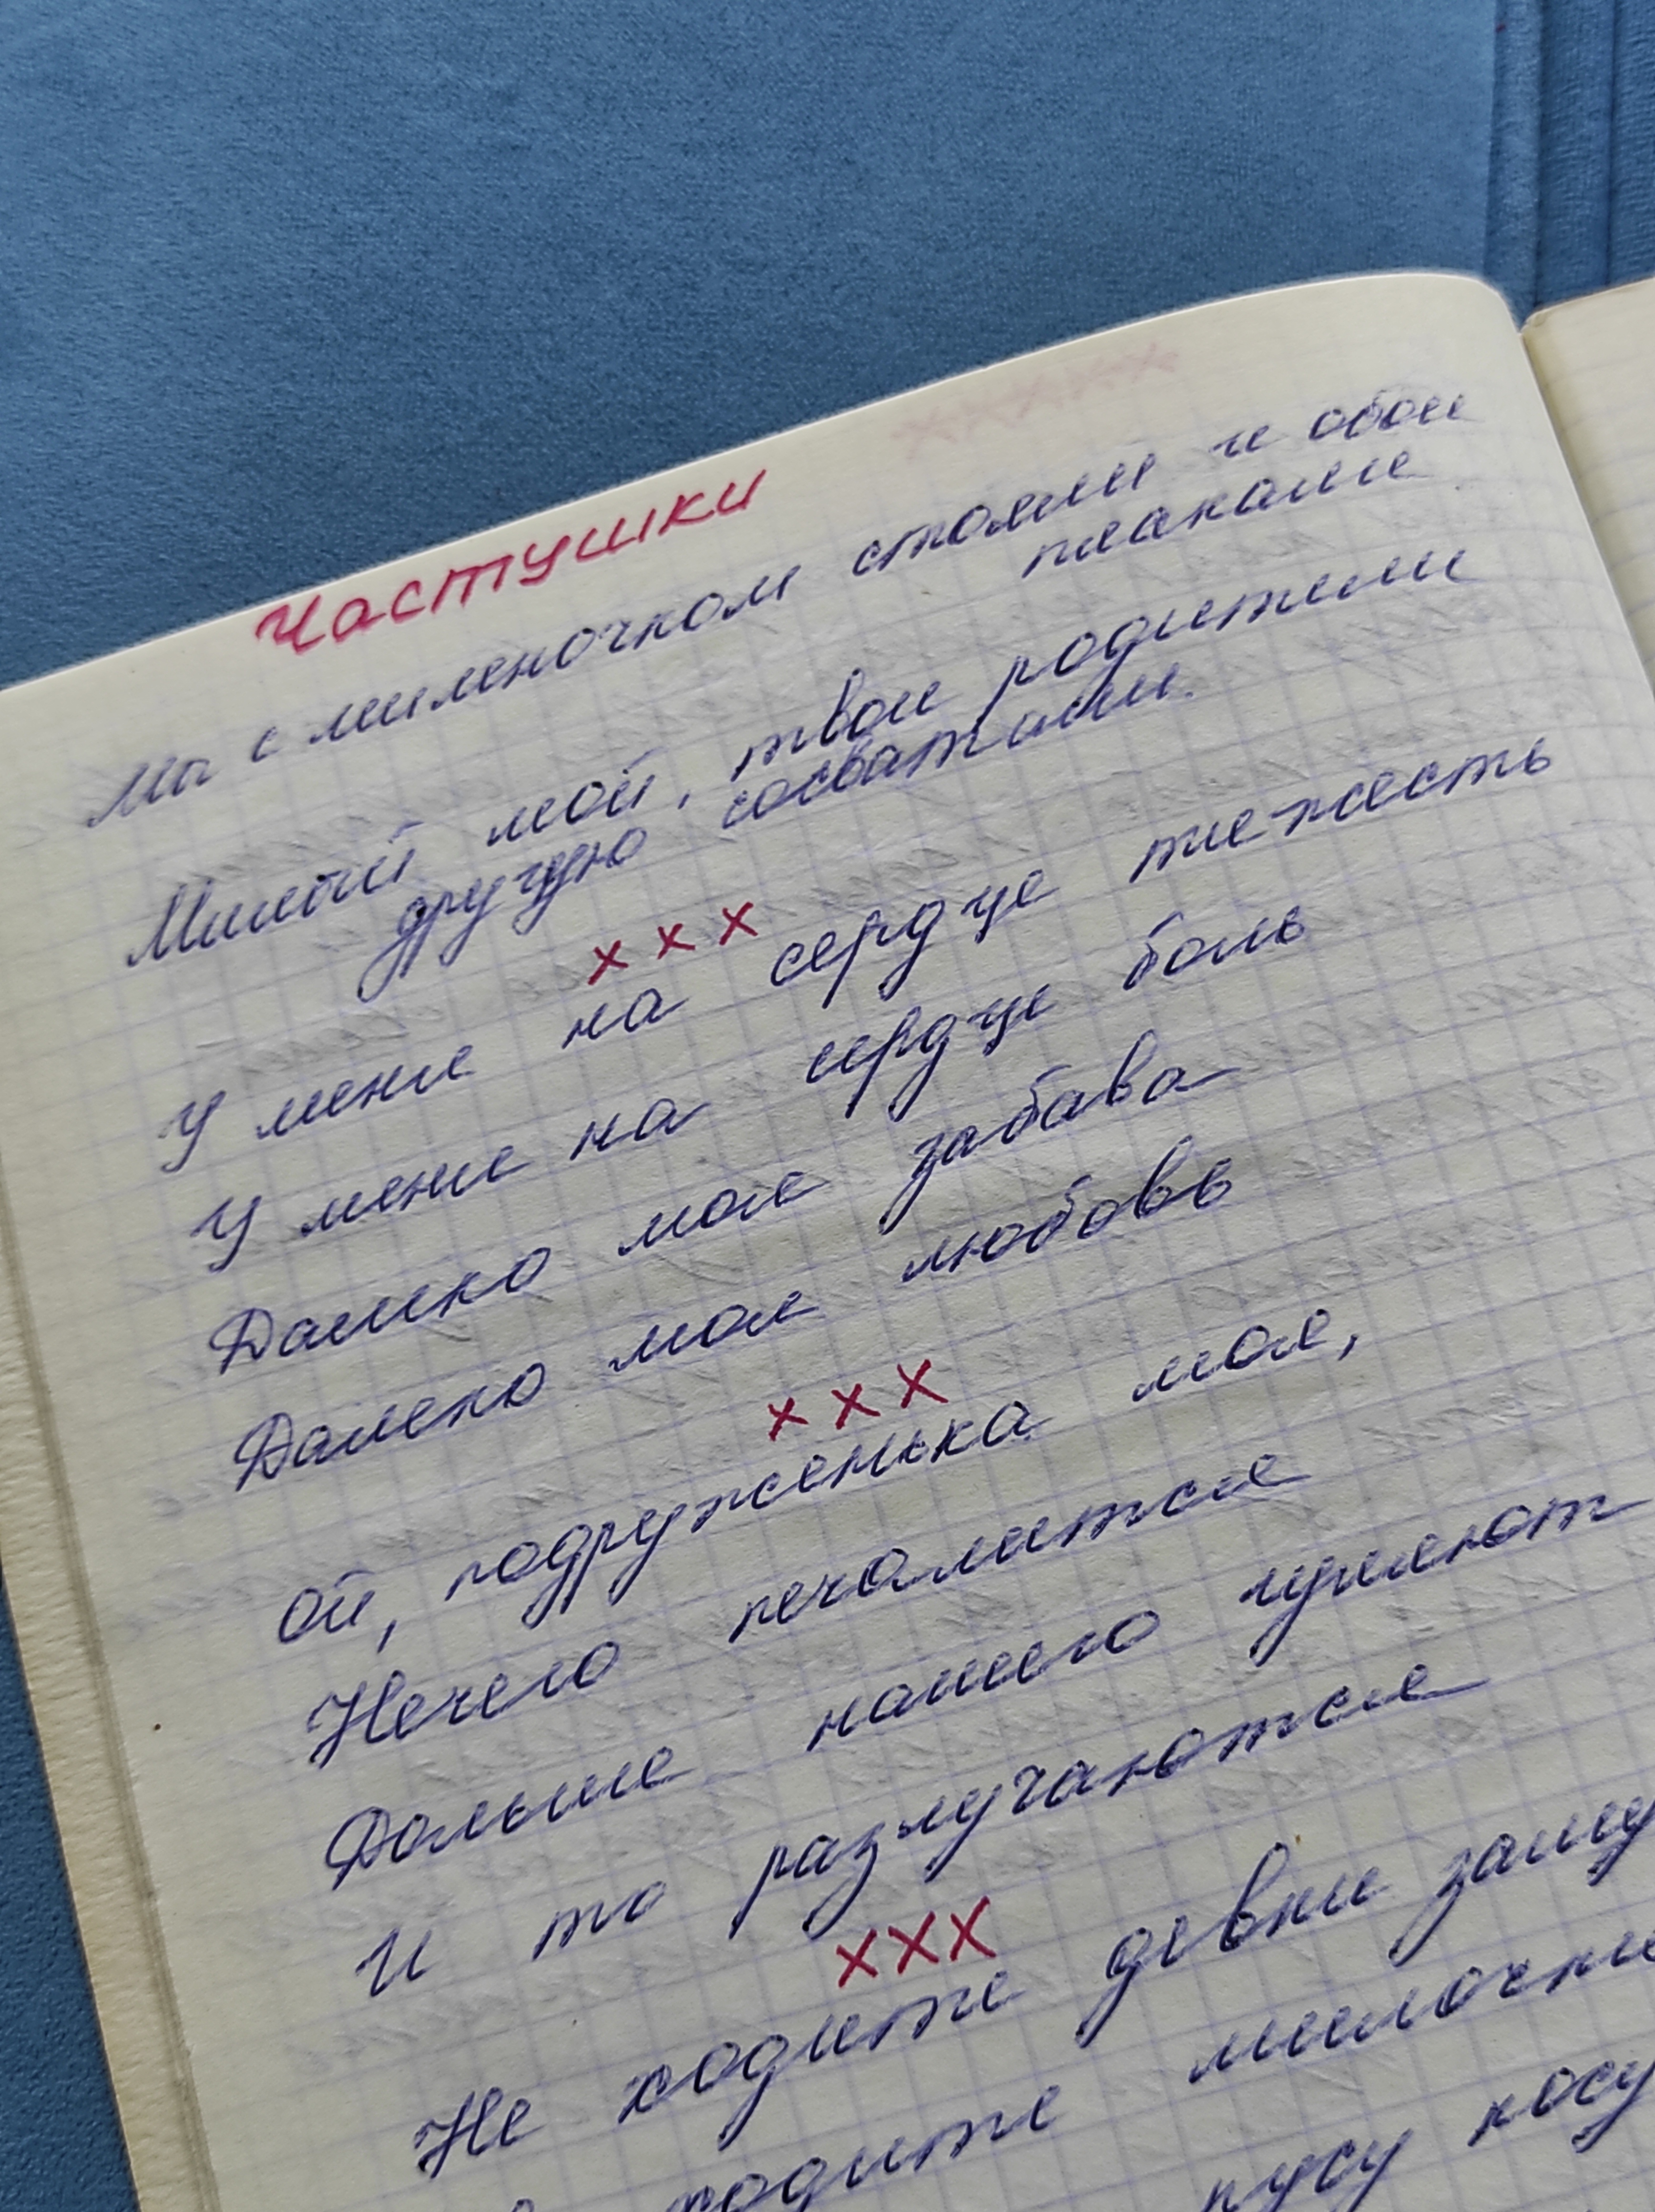 Частушки
Мы с миленочком стояли и обои
плакали
Милый мой, твои родители
другую сосватали.
х х х
У меня на сердце тяжесть
У меня на сердце боль
Далеко моя забава
Далеко моя любовь
х х х
Ой, подруженька моя,
Нечего печалится
Дольше нашего гуляют
И то разлучаются
ххх
Не ходите девки
ходите милочки
косу